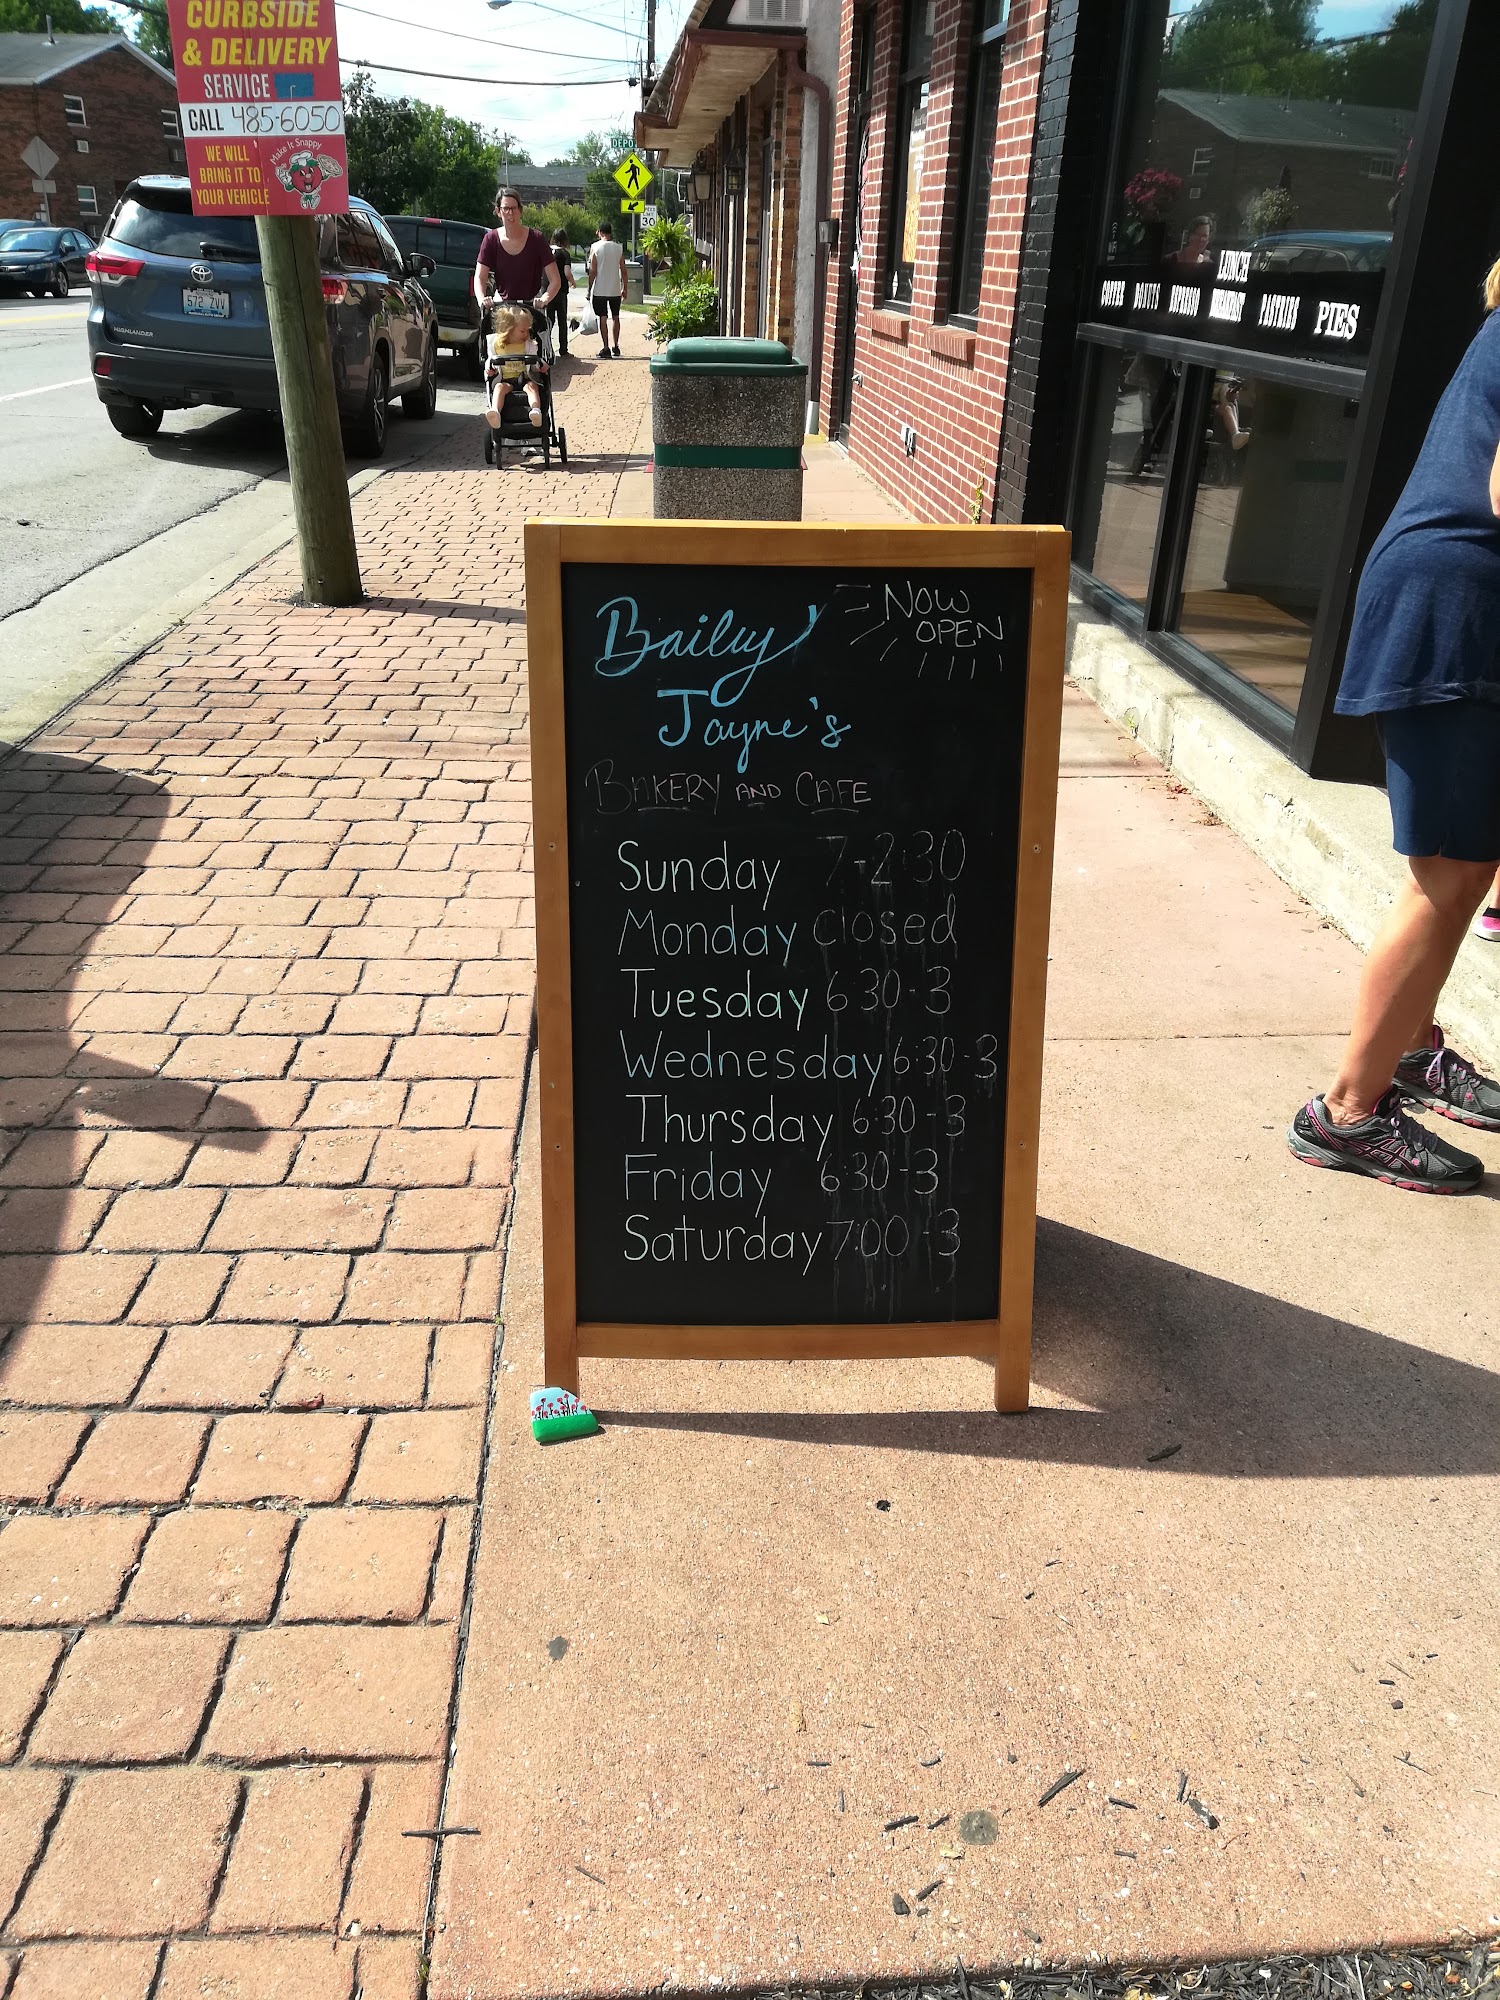 CURBSIDE
& DELIVERY
SERVICE
CALL 485-6050
WE WILL
BRING IT TO
YOUR VEHICLE
Make It Snappy
572 ZVV
HIGHLANDER
DEPO
SPEED
LIMIT
30
LUNCH
COFFEE DONUTS ESPRESSO BREAKFAST PASTRIES PIES
Baily
Jayne's
NOW
OPEN
BAKERY AND CAFE
Sunday 7-2:30
Monday closed
Tuesday 6:30-3
Wednesday 6:30-3
Thursday 6:30-3
Friday 6:30-3
Saturday 7:00-3